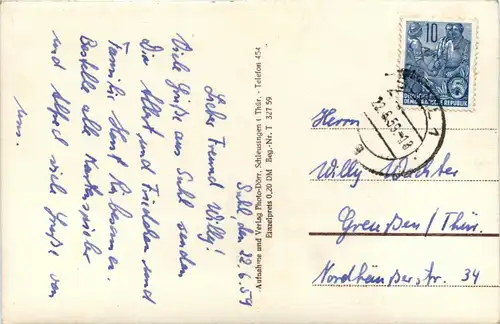 Suhl, den 22.6.59
Lieber Freund Willy!
Viele Grüße aus Suhl senden
Dir Albert und Frieda und
Familie Horst
Bestelle alle
und Alfred viele Grüße von
uns.
Aufnahme und Verlag Photo-Dörr, Schleusingen i Thür. - Telefon 454
Einzelpreis 0,20 DM Reg.-Nr. T 327 59
10
DEUTSCHE
DEMOKRATISCHE REPUBLIK
SUHL 1
22.6.59-18
a
Herrn
Willy Wachter
Greußen/Thür.
Nordhäußerstr. 34